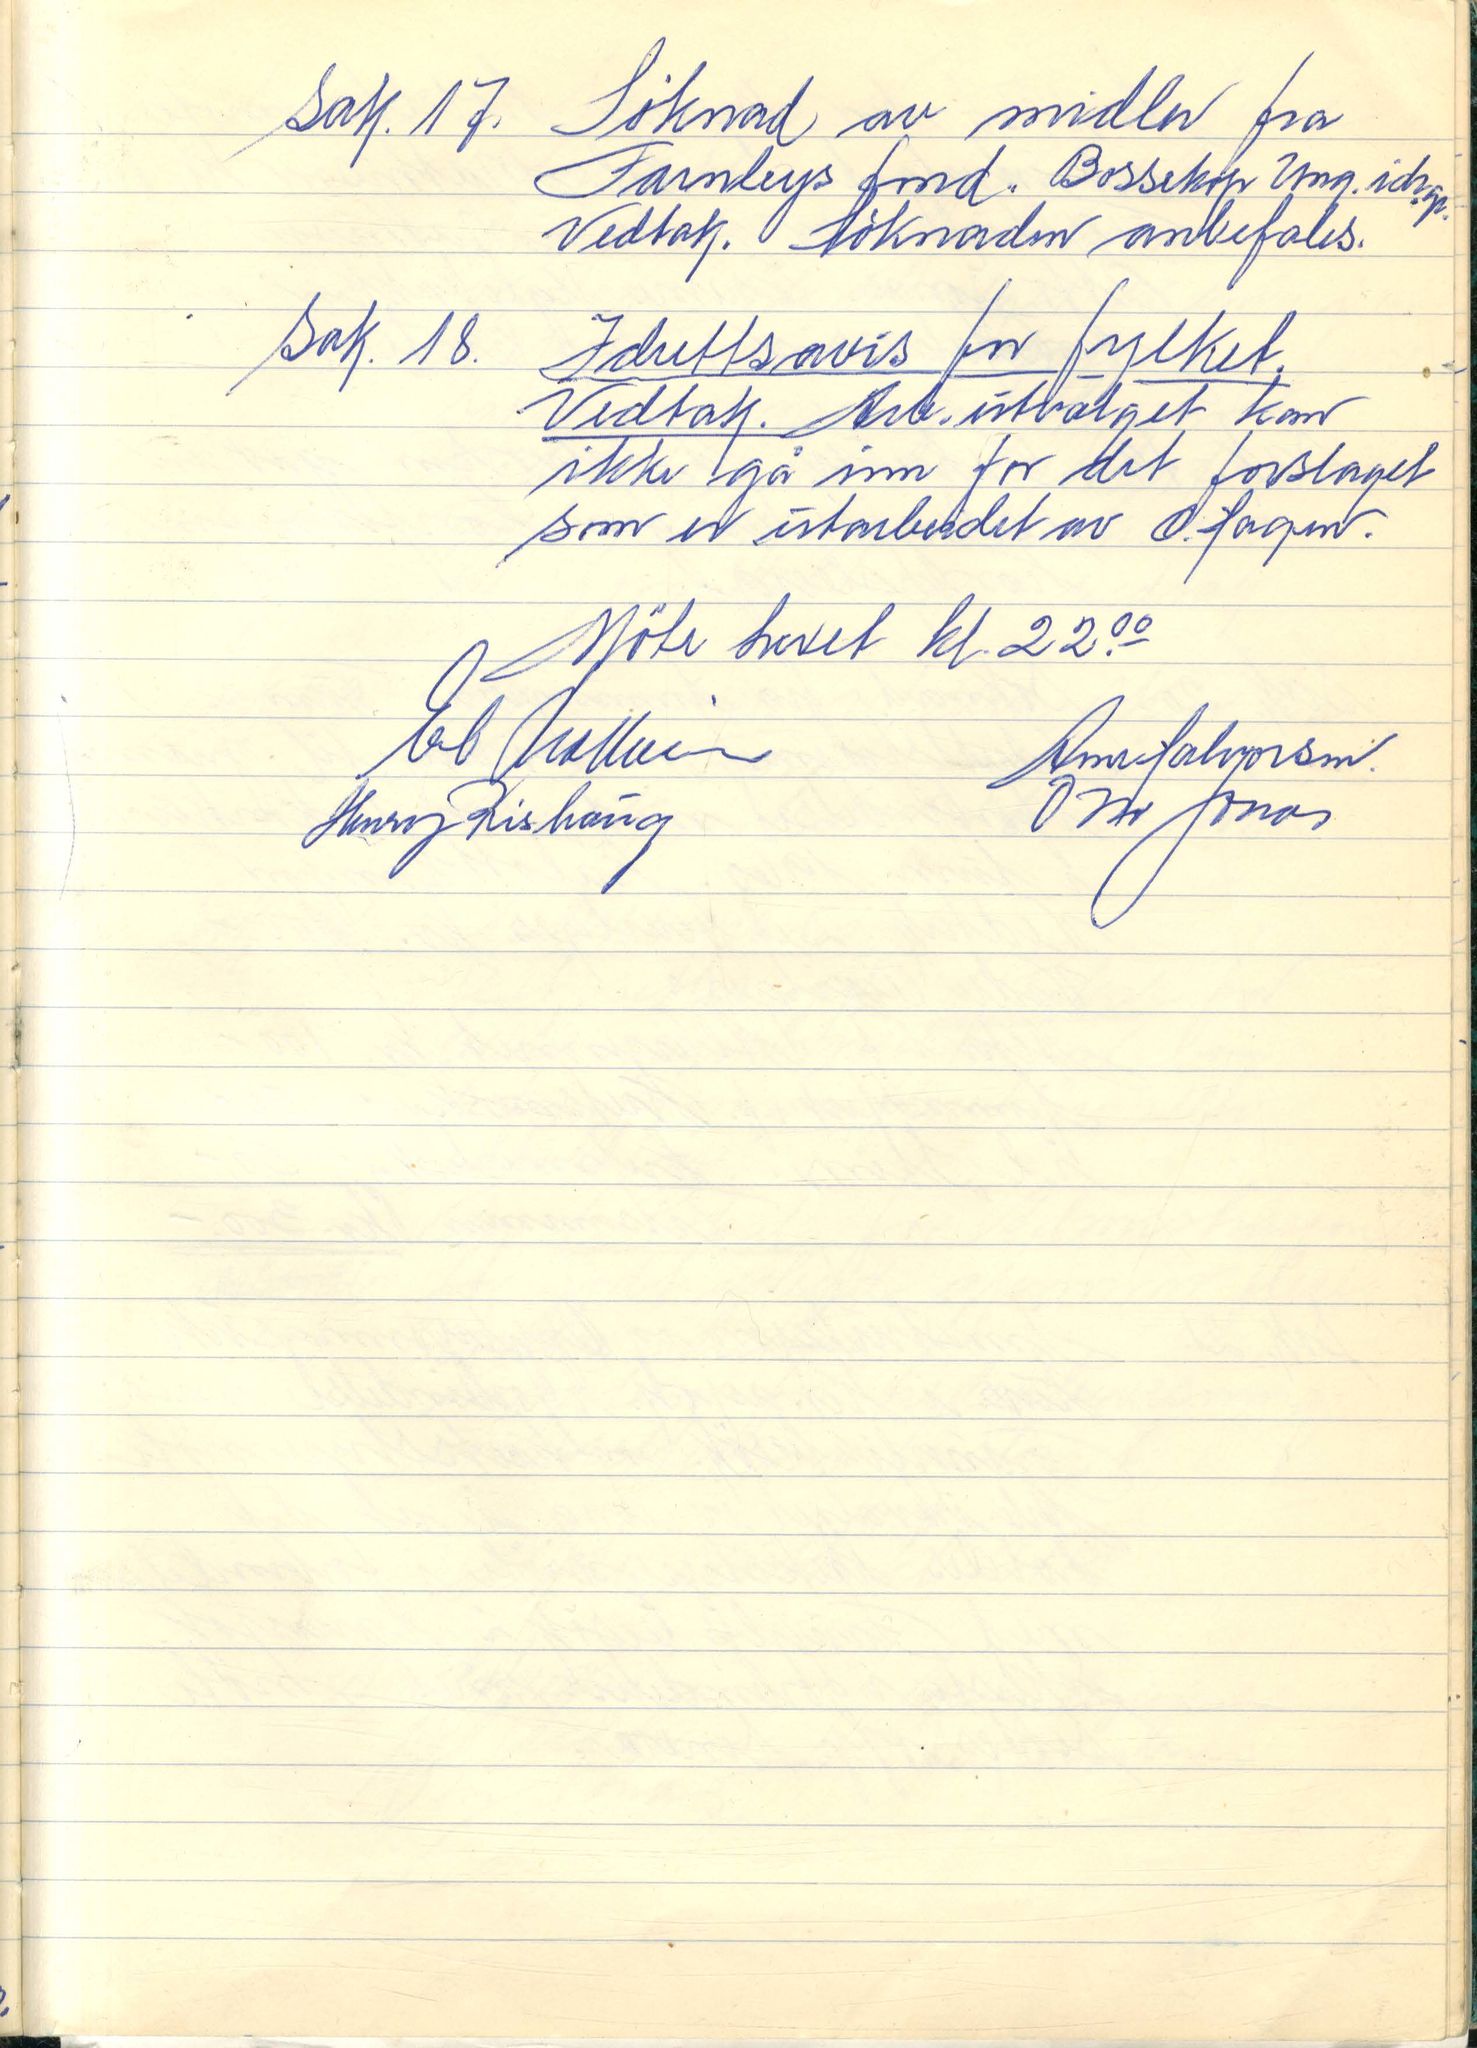 Sak. 17. Söknad av midler fra
Farnleys fond. Bossekop Ung. idr.gr.
Vedtak. Söknaden anbefales.
Sak. 18. Idrettsavis for fylket.
Vedtak. Arb. utvalget kan
ikke gå inn for det forslaget
som er utarbeidet av O. Hagen.
Möte hevet kl. 22.00
Henry Rishaug
Arne Halvorsen.
Otto Jonas